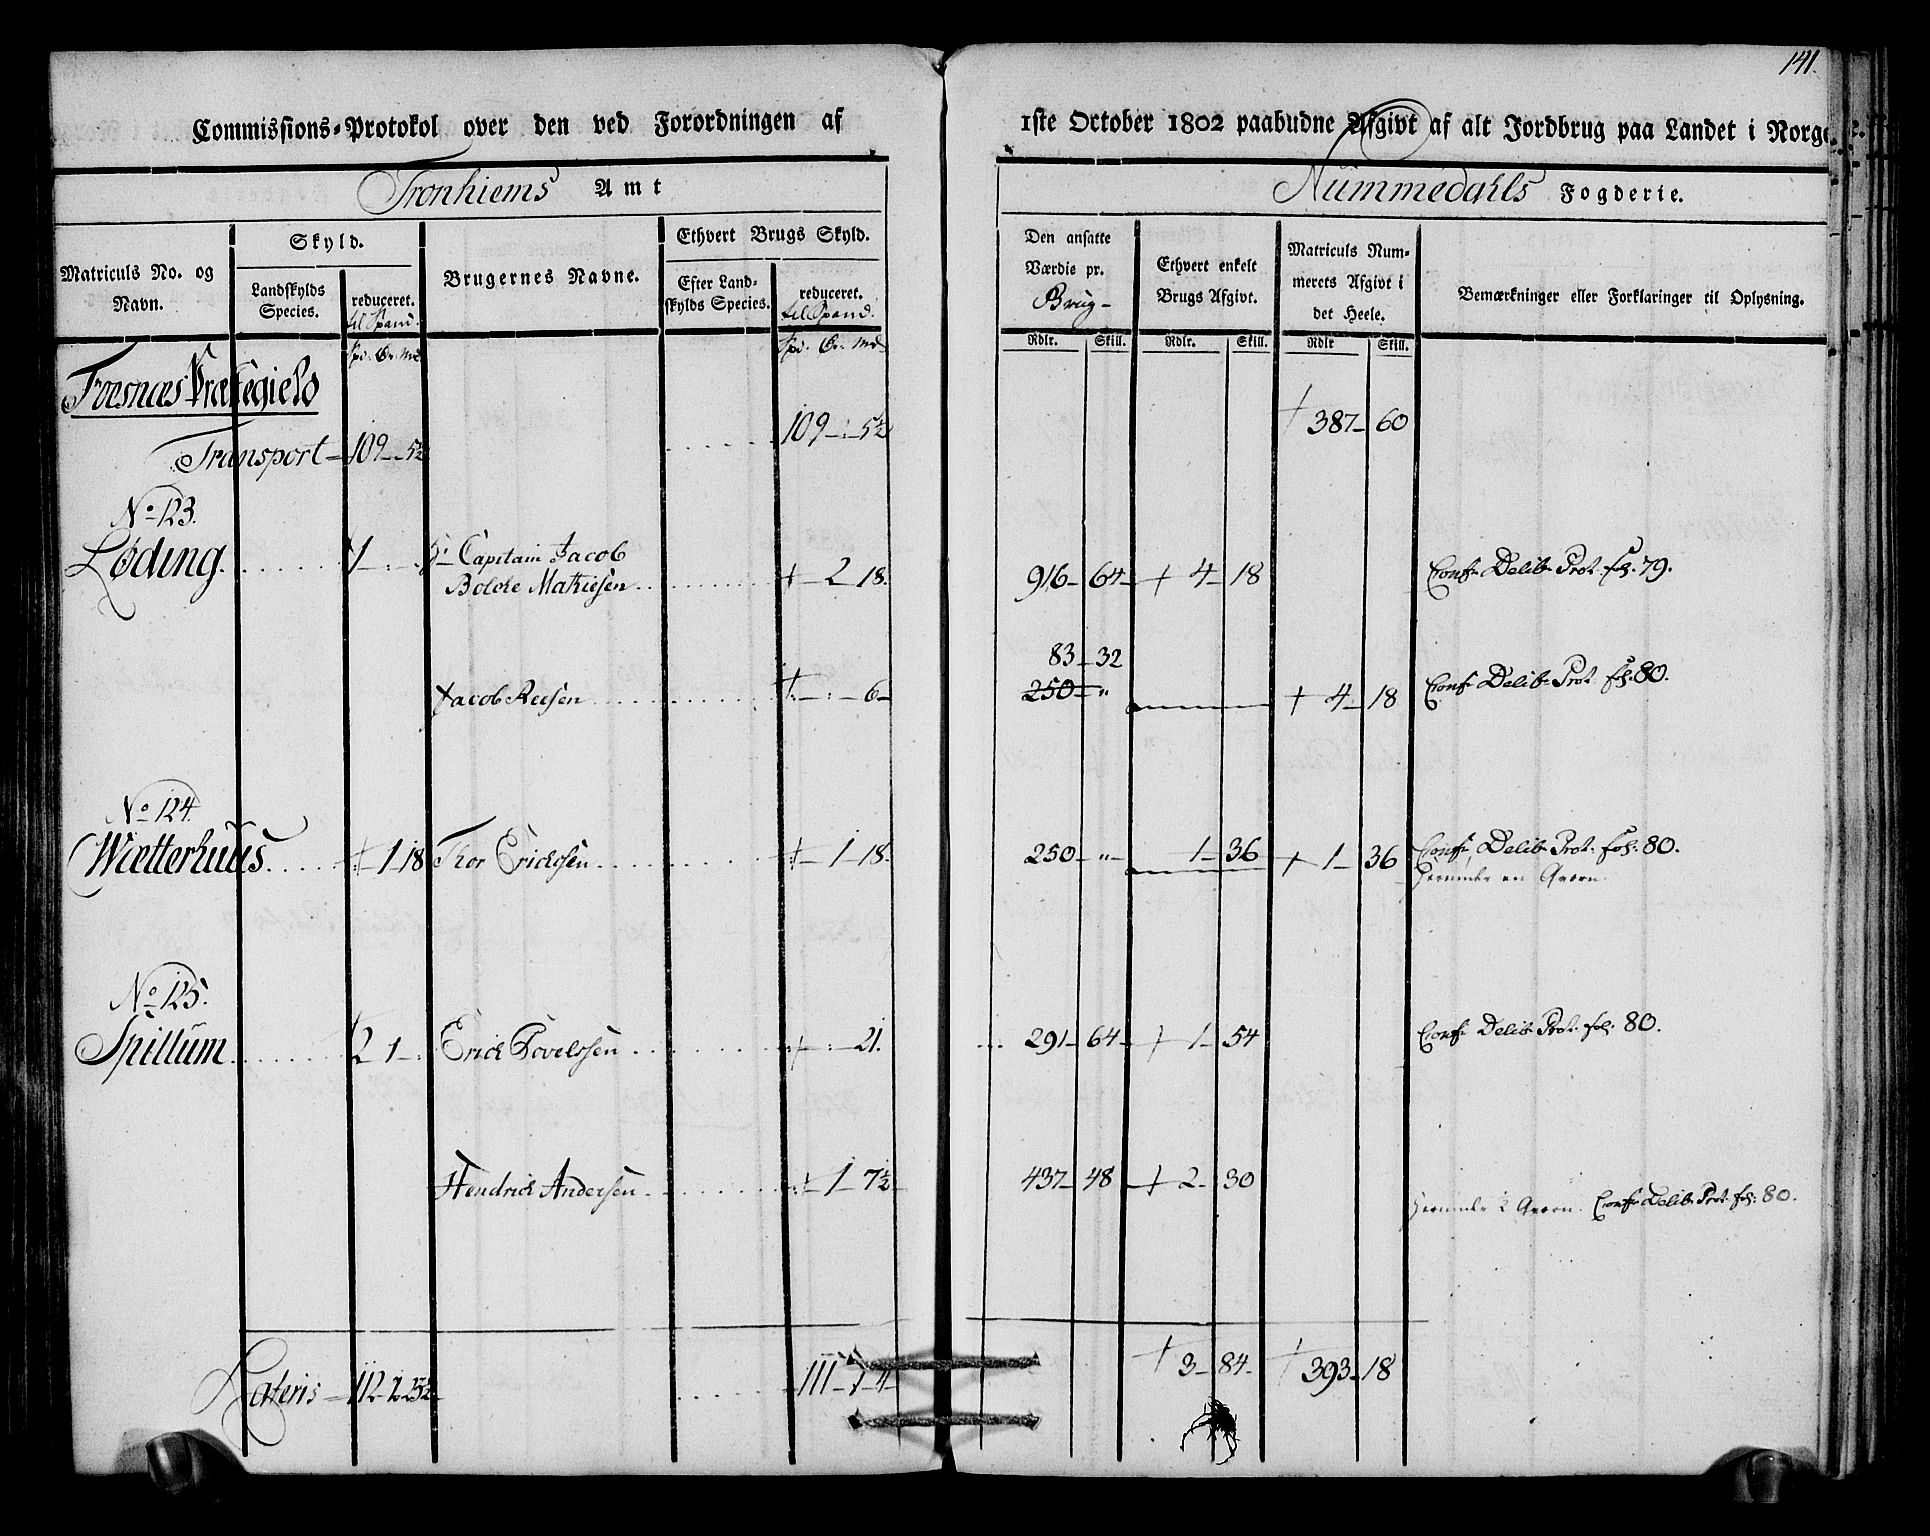 141.
Commissions-Protokol over den ved Forordningen af 1ste October 1802 paabudne Afgivt af alt Jordbrug paa Landet i Norge
Tronhiems Amt
Nummedahls Fogderie.
Matriculs No. og Navn.
Skyld.
Landskylds Species.
reduceret. til Spand.
Brugernes Navne.
Ethvert Brugs Skyld.
Efter Landskylds Species.
reduceret. til Spand.
Den ansatte Værdie pr. Brug
Ethvert enkelt Brugs Afgivt.
Matriculs Nummerets Afgivt i det Heele.
Bemærkninger eller Forklaringer til Oplysning.
Sp. Ør. Mk
Sp. Ør. Mk
Rdlr. Skill. Rdlr. Skill. Rdlr Skill.
Foesnæs Præstegield
Transport 109 - . - 5½ 109 - : - 5½ 387 - 60
No 123.
Løding 1 - : Hr Capitain Jacob
Bolche Mathiesen + - 2 18. 916 - 64 + 4 - 18 Conf. Delib. Prot. fol. 79.
83 - 32
Jacob Reesen : - : - 6 250 - " + 4 - 18 Conf. Delib. Prot. fol. 80.
No 124.
Wætterhuus : 1 - 18 Thor Erichsen + - 1 - 18. 250 - " - 1 - 36 + 1 - 36 Conf. Delib. Prot. fol: 80.
Herunder en Qværn
No 125.
Spillum 2 - 1 - : Erich Povelssen + - : - 21. 291 - 64 + 1 - 54 Conf. Delib. Prot. fol. 80.
Hendrich Andersen + - 1 - 7½ 437 - 48 + 2 - 30 Herunder 2 Qværn. Conf. Delib. Prot. fol: 80.
Lateris 112 - 2 - 23½ 111 - 1 - 4 3 - 84 393 - 18